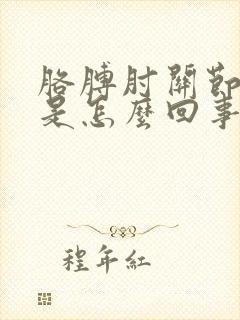 胳膊肘關節
是怎麼回事
程年紅